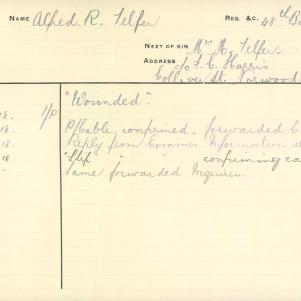 NAME Alfred R. Telfer REG. &C. 48th B
NEXT OF KIN Mr. M. Telfer
ADDRESS c/o F. C. Harris
Colliver St. Norwood
18. 1/P "Wounded".
18. P/Cable, confirmed. forwarded C
18. Reply from Commr Information se
18. " " confirming ca
Same forwarded Inquirer.